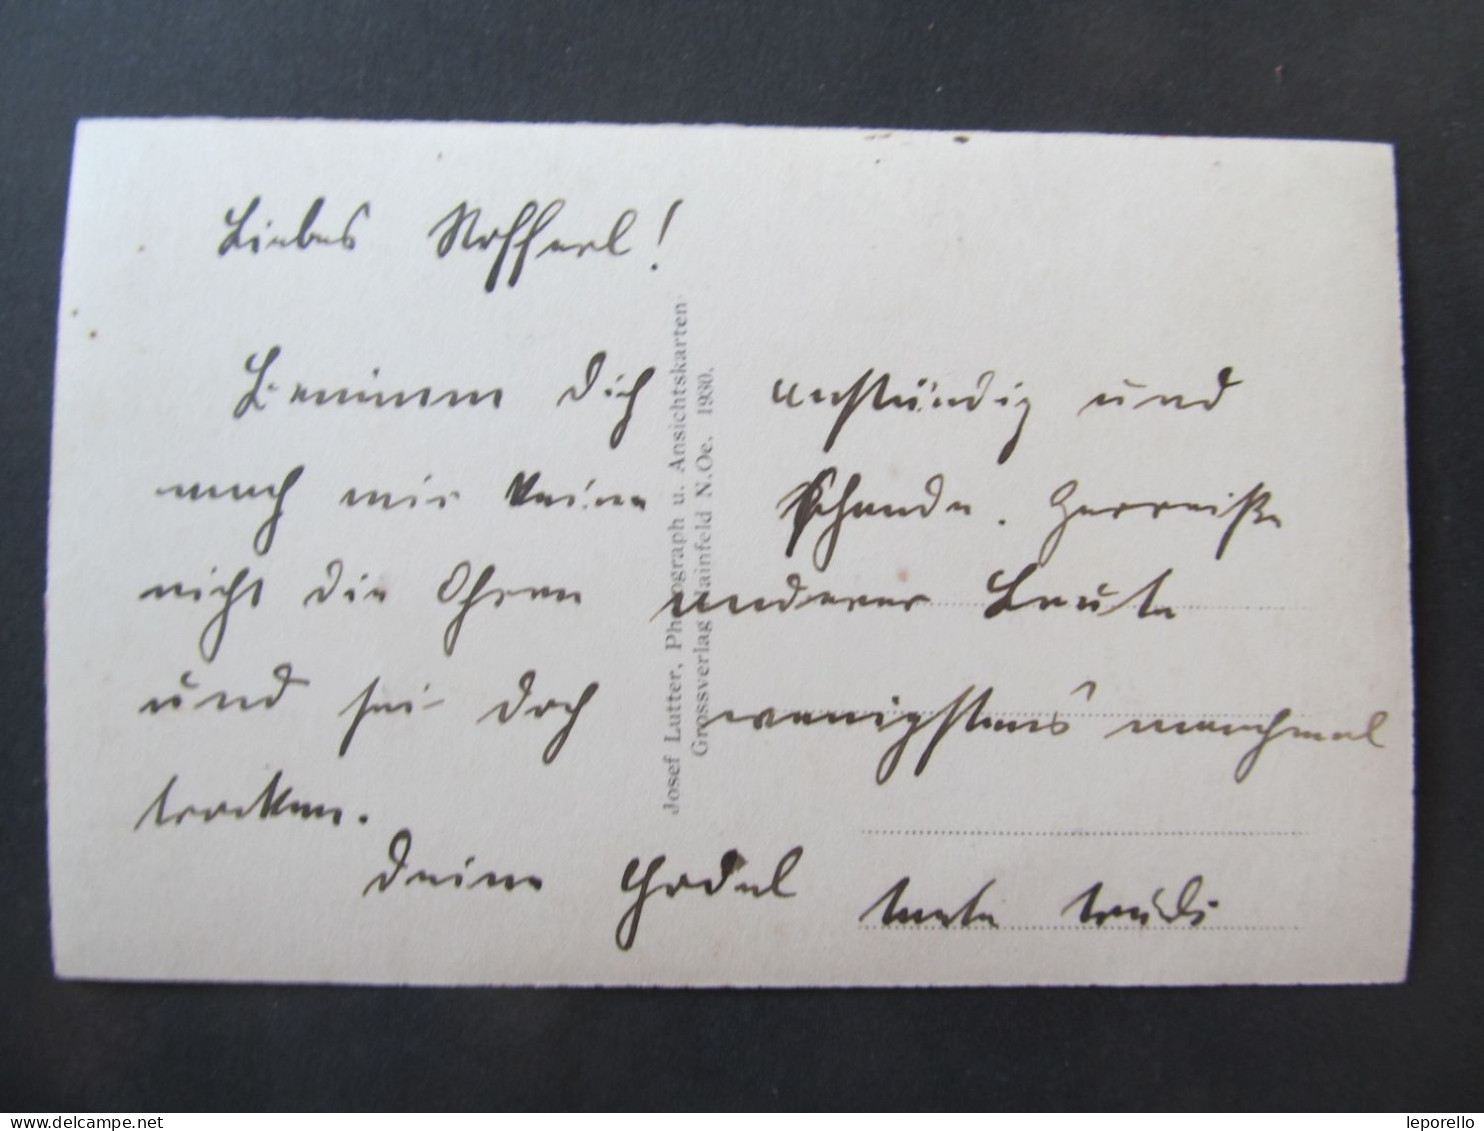 Liebes Stofferl!
Benimm dich anständig und
mach mir keine Schande. Zerreiße
nicht die Ohren anderer Leute
und sei doch wenigstens manchmal
trocken.
Deine Godel
Tante Trudi
Josef Lutter, Photograph u. Ansichtskarten
Grossverlag Hainfeld N.Oe. 1930.
leporello